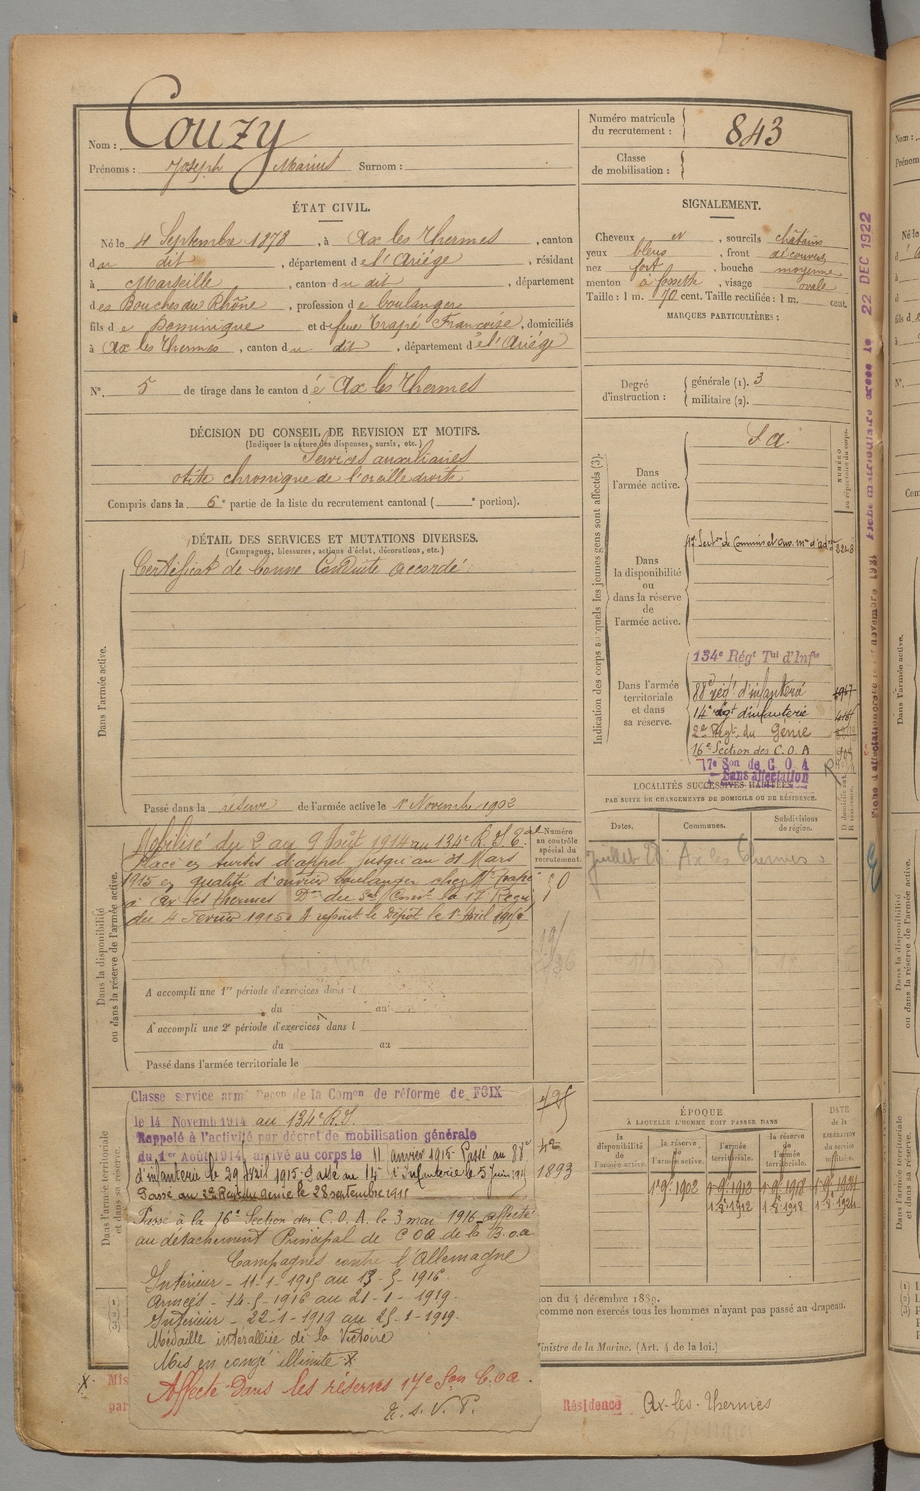 Nom : Couzy
Prénoms : Joseph Marius Surnom :
ÉTAT CIVIL.
Né le 4 Septembre 1878, à Ax les Thermes, canton
du dit, département de l'Ariège, résidant
à Marseille, canton du dit, département
des Bouches du Rhône, profession de boulanger
fils de Dominique et de feue Trapé Françoise, domiciliés
à Ax les Thermes, canton du dit, département de l'Ariège
N°. 5 de tirage dans le canton de Ax les Thermes
DÉCISION DU CONSEIL DE REVISION ET MOTIFS.
(Indiquer la nature des dispenses, sursis, etc.)
Services auxiliaires
otite chronique de l'oreille droite
Compris dans la 6e partie de la liste du recrutement cantonal ( e portion).
DÉTAIL DES SERVICES ET MUTATIONS DIVERSES.
(Campagnes, blessures, actions d'éclat, décorations, etc.)
Dans l'armée active.
Certificat de bonne Conduite accordé.
Passé dans la réserve de l'armée active le 1er Novembre 1902
Dans la disponibilité
ou dans la réserve de l'armée active.
Mobilisé du 2 au 9 Août 1914 au 134e R.I.T.
Placé en sursis d'appel jusqu'au 31 Mars
1915 en qualité d'ouvrier boulanger chez
à Ax les Thermes la 17 Région
du 4 Février 1915. A rejoint le Dépôt le 1er Avril
A accompli une 1re période d'exercices dans l
du au
A accompli une 2e période d'exercices dans l
du au
Passé dans l'armée territoriale le
Numéro
au contrôle
spécial du
recrutement.
Dans l'armée territoriale
et dans sa réserve.
Classe service armé de la Comon de réforme de FOIX
le 14 Novemb 1914 au 134e R.I.
Rappelé à l'activité par décret de mobilisation générale
du 1er Août 1914, arrivé au corps le 11 janvier 1915. Passé au 88e
d'infanterie le 29 Avril 1915. Passé au 14e d'Infanterie le 5 juin 1915
Passé au 2e Régt du Génie le 28 septembre 1915
Passé à la 16e Section des C.O.A. le 3 mai 1916 affecté
au détachement Principal de COA de la B.o.a
Campagnes contre l'Allemagne
Intérieur - 11-1-1915 au 13-5-1916.
Armées - 14-5-1916 au 21-1-1919.
Intérieur - 22-1-1919 au 25-1-1919.
Médaille interalliée de la Victoire
Mis en congé illimité X
Affecté dans les réserves 17e Son C.o.a.
T. S. V. P.
1893
X. Mis
par
Numéro matricule
du recrutement : 843
Classe
de mobilisation :
SIGNALEMENT.
Cheveux et, sourcils châtains
yeux bleus, front découvert
nez fort, bouche moyenne
menton à fossette, visage ovale
Taille : 1 m. 70 cent. Taille rectifiée : 1 m. cent.
MARQUES PARTICULIÈRES :
Degré
d'instruction :
générale (1). 3
militaire (2).
Indication des corps auxquels les jeunes gens sont affectés (3).
Dans
l'armée active.
S a.
NUMÉRO
au répertoire du corps.
Dans
la disponibilité
ou
dans la réserve
de
l'armée active.
17e Secton de Commis et ouv. m. d'adon
Dans l'armée
territoriale
et dans
sa réserve.
134e Régt Tal d'Infie
88e régt d'infanterie
14e Régt d'infanterie
2e Régt. du Génie
16e Section des C.O.A
17e Son de C.O.A
Sans affectation
LOCALITÉS SUCCESSIVES HABITÉES
PAR SUITE DE CHANGEMENTS DE DOMICILE OU DE RÉSIDENCE.
Dates.
Communes.
Subdivisions
de région.
Juillet 28 Ax les Thermes
ÉPOQUE
À LAQUELLE L'HOMME DOIT PASSER DANS
la
disponibilité
de
l'armée active.
la réserve
de
l'armée active.
l'armée
territoriale.
la réserve
de l'armée
territoriale.
DATE
de la
LIBÉRATION
du service
militaire.
1er 9 1902
1er 8 1912
1er 8 1918
on du 4 décembre 1889.
comme non exercés tous les hommes n'ayant pas passé au drapeau.
Ministre de la Marine. (Art. 4 de la loi.)
Résidence Ax-les-Thermes
22 DEC 1922